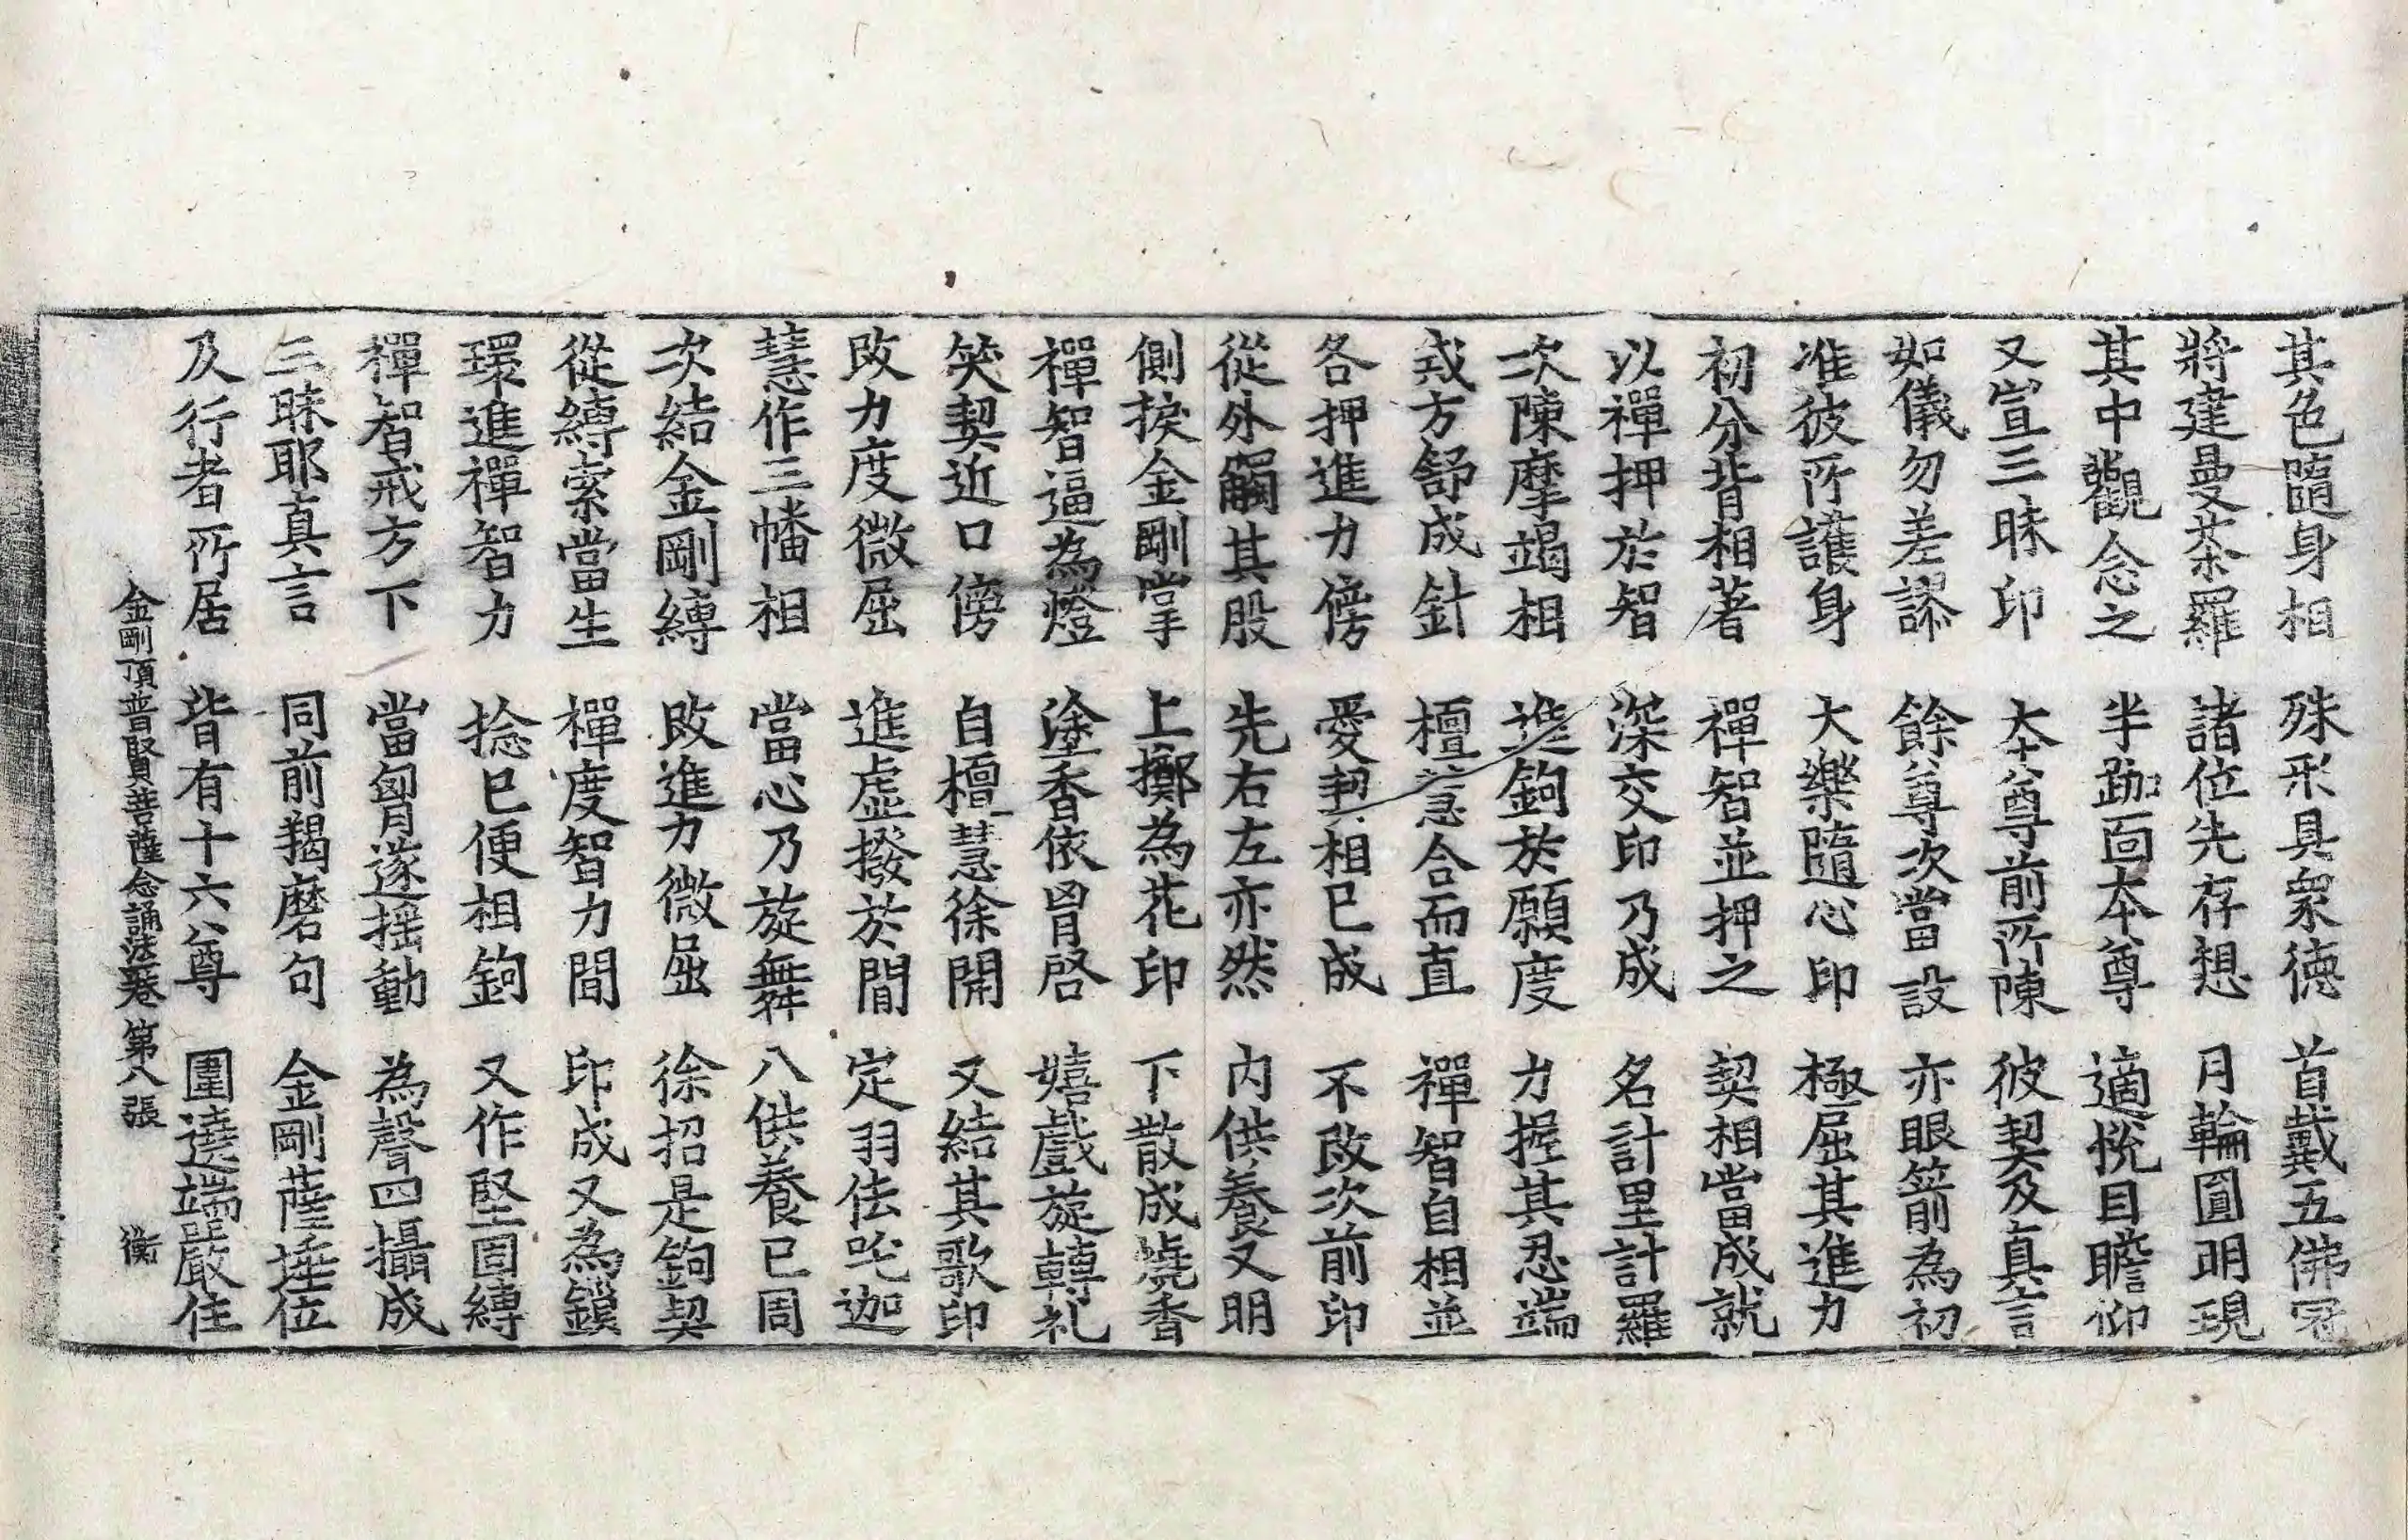 其色隨身相　殊形具衆德　首戴五佛冠
將建曼茶羅　諸位先存想　月輪圓明現
其中觀念之　半跏面本尊　適悅目瞻仰
又宣三昧印　本尊前所陳　彼契及真言
如儀勿差謬　餘尊次當設　亦眼箭為初
准彼所護身　大樂隨心印　極屈其進力
初分背相著　禪智並押之　契相當成就
以禪押於智　深交印乃成　名計里計羅
次陳摩竭相　進鉤於願度　力握其忍端
戒方舒成針　檀慧合而直　禪智自相並
各押進力傍　愛契相已成　不改次前印
從外觸其股　先右左亦然　內供養又明
側捩金剛掌　上擲為花印　下散成燒香
禪智逼為燈　塗香依胷啓　嬉戲旋轉礼
笑契近口傍　自檀慧徐開　又結其歌印
改力度微屈　進虛撥於間　定羽佉吒迦
慧作三幡相　當心乃旋舞　八供養已周
次結金剛縛　改進力微屈　徐招是鉤契
從縛索當生　禪度智力間　印成又為鎖
環進禪智力　捻已便相鉤　又作堅固縛
禪智戒方下　當胷遂摇動　為聲四攝成
三昧耶真言　同前羯磨句　金剛薩埵位
及行者所居　皆有十六尊　圍遶端嚴住
金剛頂普賢菩薩念誦法卷　第八張　衡